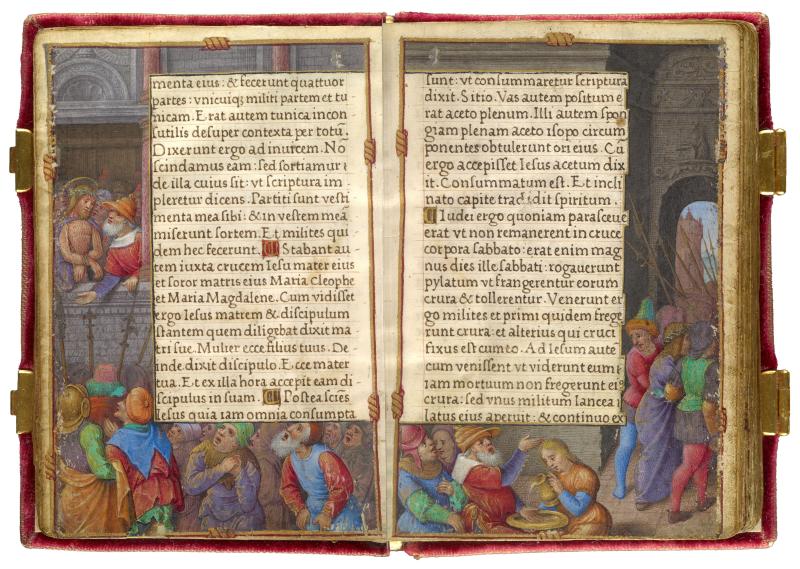 menta eius: & fecerunt quattuor
partes: vnicuiq; militi partem et tu
nicam. Erat autem tunica incon
sutilis desuper contexta per totũ.
Dixerunt ergo ad inuicem. No
scindamus eam: sed sortiamur
de illa cuius sit: vt scriptura im
pleretur dicens. Partiti sunt vesti
menta mea sibi: & in vestem meã
miserunt sortem. Et milites qui
dem hec fecerunt. Stabant au
tem iuxta crucem Iesu mater eius
et soror matris eius Maria Cleophe
et Maria Magdalene. Cum vidisset
ergo Iesus matrem & discipulum
stantem quem diligebat dixit ma
tri sue. Mulier ecce filius tuus. De
inde dixit discipulo. Ecce mater
tua. Et ex illa hora accepit eam di
scipulus in suam. Postea sciẽs
Iesus quia iam omnia consumpta
sunt: vt consummaretur scriptura
dixit. Sitio. Vas autem positum e
rat aceto plenum. Illi autem spon
giam plenam aceto isopo circum
ponentes obtulerunt ori eius. Cũ
ergo accepisset Iesus acetum dix
it. Consummatum est. Et incli
nato capite tradidit spiritum.
Iudei ergo quoniam parasceue
erat vt non remanerent in cruce
corpora sabbato: erat enim mag
nus dies ille sabbati: rogauerunt
pylatum vt frangerentur eorum
crura & tollerentur. Venerunt er
go milites et primi quidem frege
runt crura: et alterius qui cruci
fixus est cum eo. Ad Iesum autẽ
cum venissent vt viderunt eum
iam mortuum non fregerunt ei⁹
crura: sed vnus militum lancea
latus eius aperuit: & continuo ex